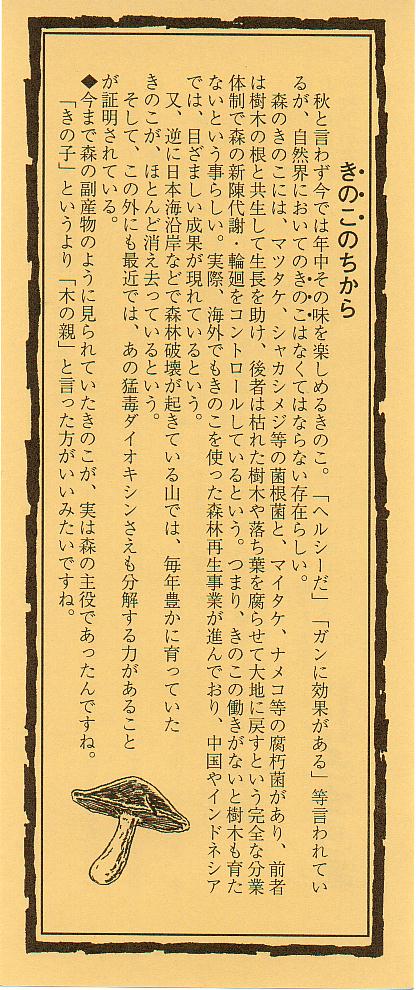 きのこのちから
秋と言わず今では年中その味を楽しめるきのこ。「ヘルシーだ」「ガンに効果がある」等言われてい
るが、自然界においてのきのこはなくてはならない存在らしい。
森のきのこには、マツタケ、シャカシメジ等の菌根菌と、マイタケ、ナメコ等の腐朽菌があり、前者
は樹木の根と共生して生長を助け、後者は枯れた樹木や落ち葉を腐らせて大地に戻すという完全な分業
体制で森の新陳代謝・輪廻をコントロールしているという。つまり、きのこの働きがないと樹木も育た
ないという事らしい。実際、海外でもきのこを使った森林再生事業が進んでおり、中国やインドネシア
では、目ざましい成果が現れているという。
又、逆に日本海沿岸などで森林破壊が起きている山では、毎年豊かに育っていた
きのこが、ほとんど消え去っているという。
そして、この外にも最近では、あの猛毒ダイオキシンさえも分解する力があること
が証明されている。
◆今まで森の副産物のように見られていたきのこが、実は森の主役であったんですね。
「きの子」というより「木の親」と言った方がいいみたいですね。